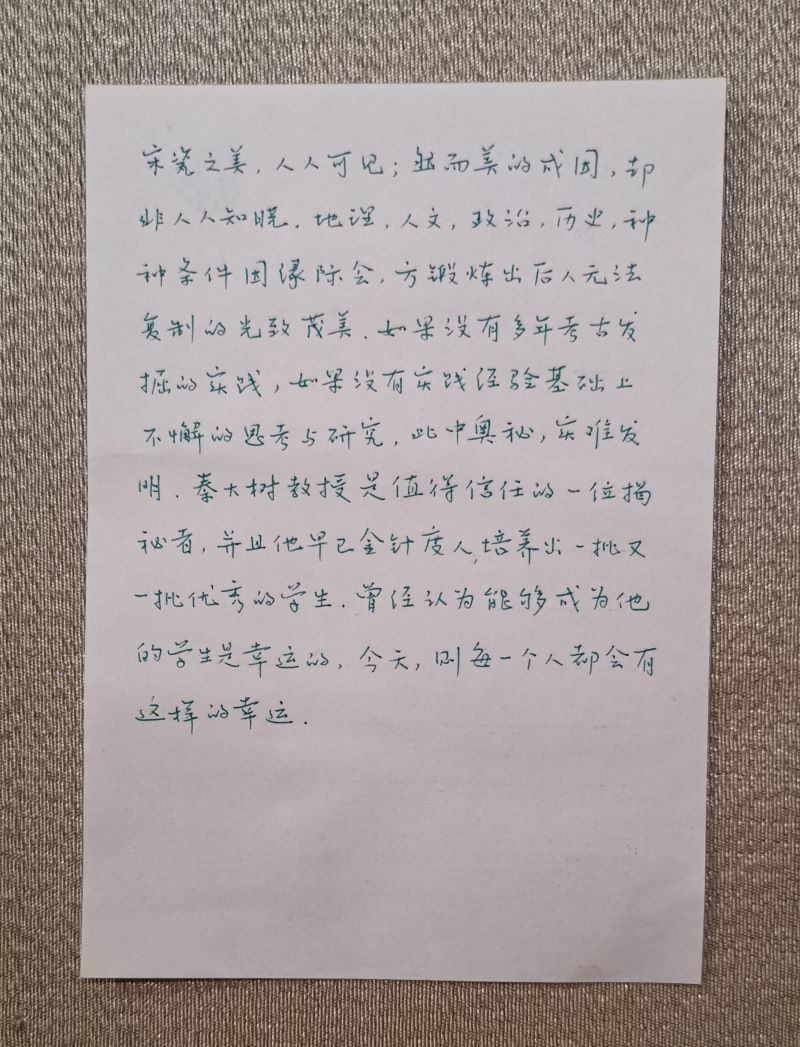 宋瓷之美，人人可见；然而美的成因，却
非人人知晓．地理，人文，政治，历史，种
种条件因缘际会，方锻炼出后人无法
复制的光致茂美．如果没有多年考古发
掘的实践，如果没有实践经验基础上
不懈的思考与研究，此中奥秘，实难发
明．秦大树教授是值得信任的一位揭
秘者，并且他早已金针度人，培养出一批又
一批优秀的学生．曾经认为能够成为他
的学生是幸运的，今天，则每一个人都会有
这样的幸运．